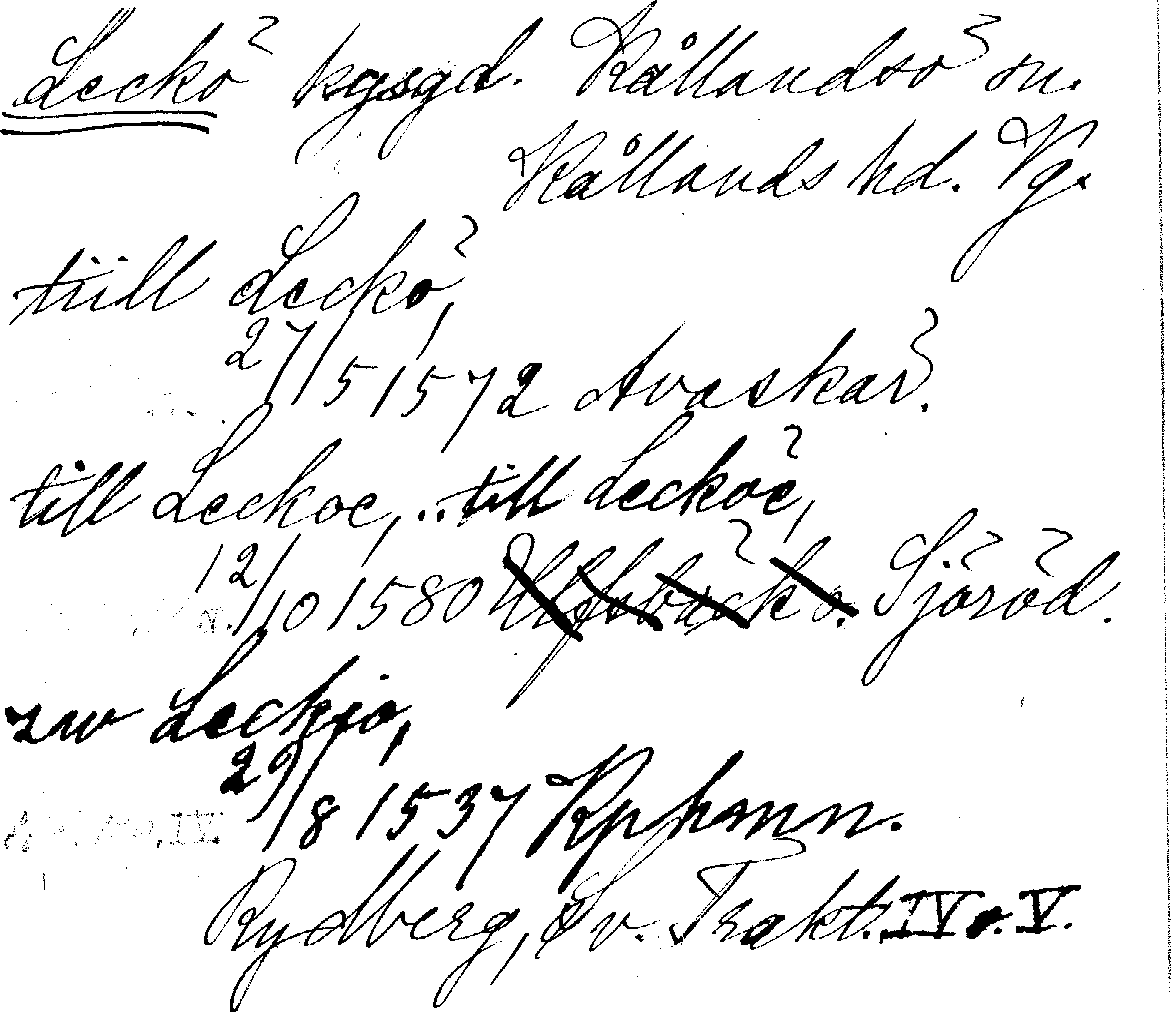 Leckö kgsgd. Kållandsö sn.
Kållands hd. Vg.
tiill Leckö,
27/5 1572 Avaskär.
till Leckoe, .. till Leckoë,
12/10 1580 Sjöröd.
zw Leckio,
29/8 1537 Kphamn.
Rydberg, Sv. Trakt. IV o. V.